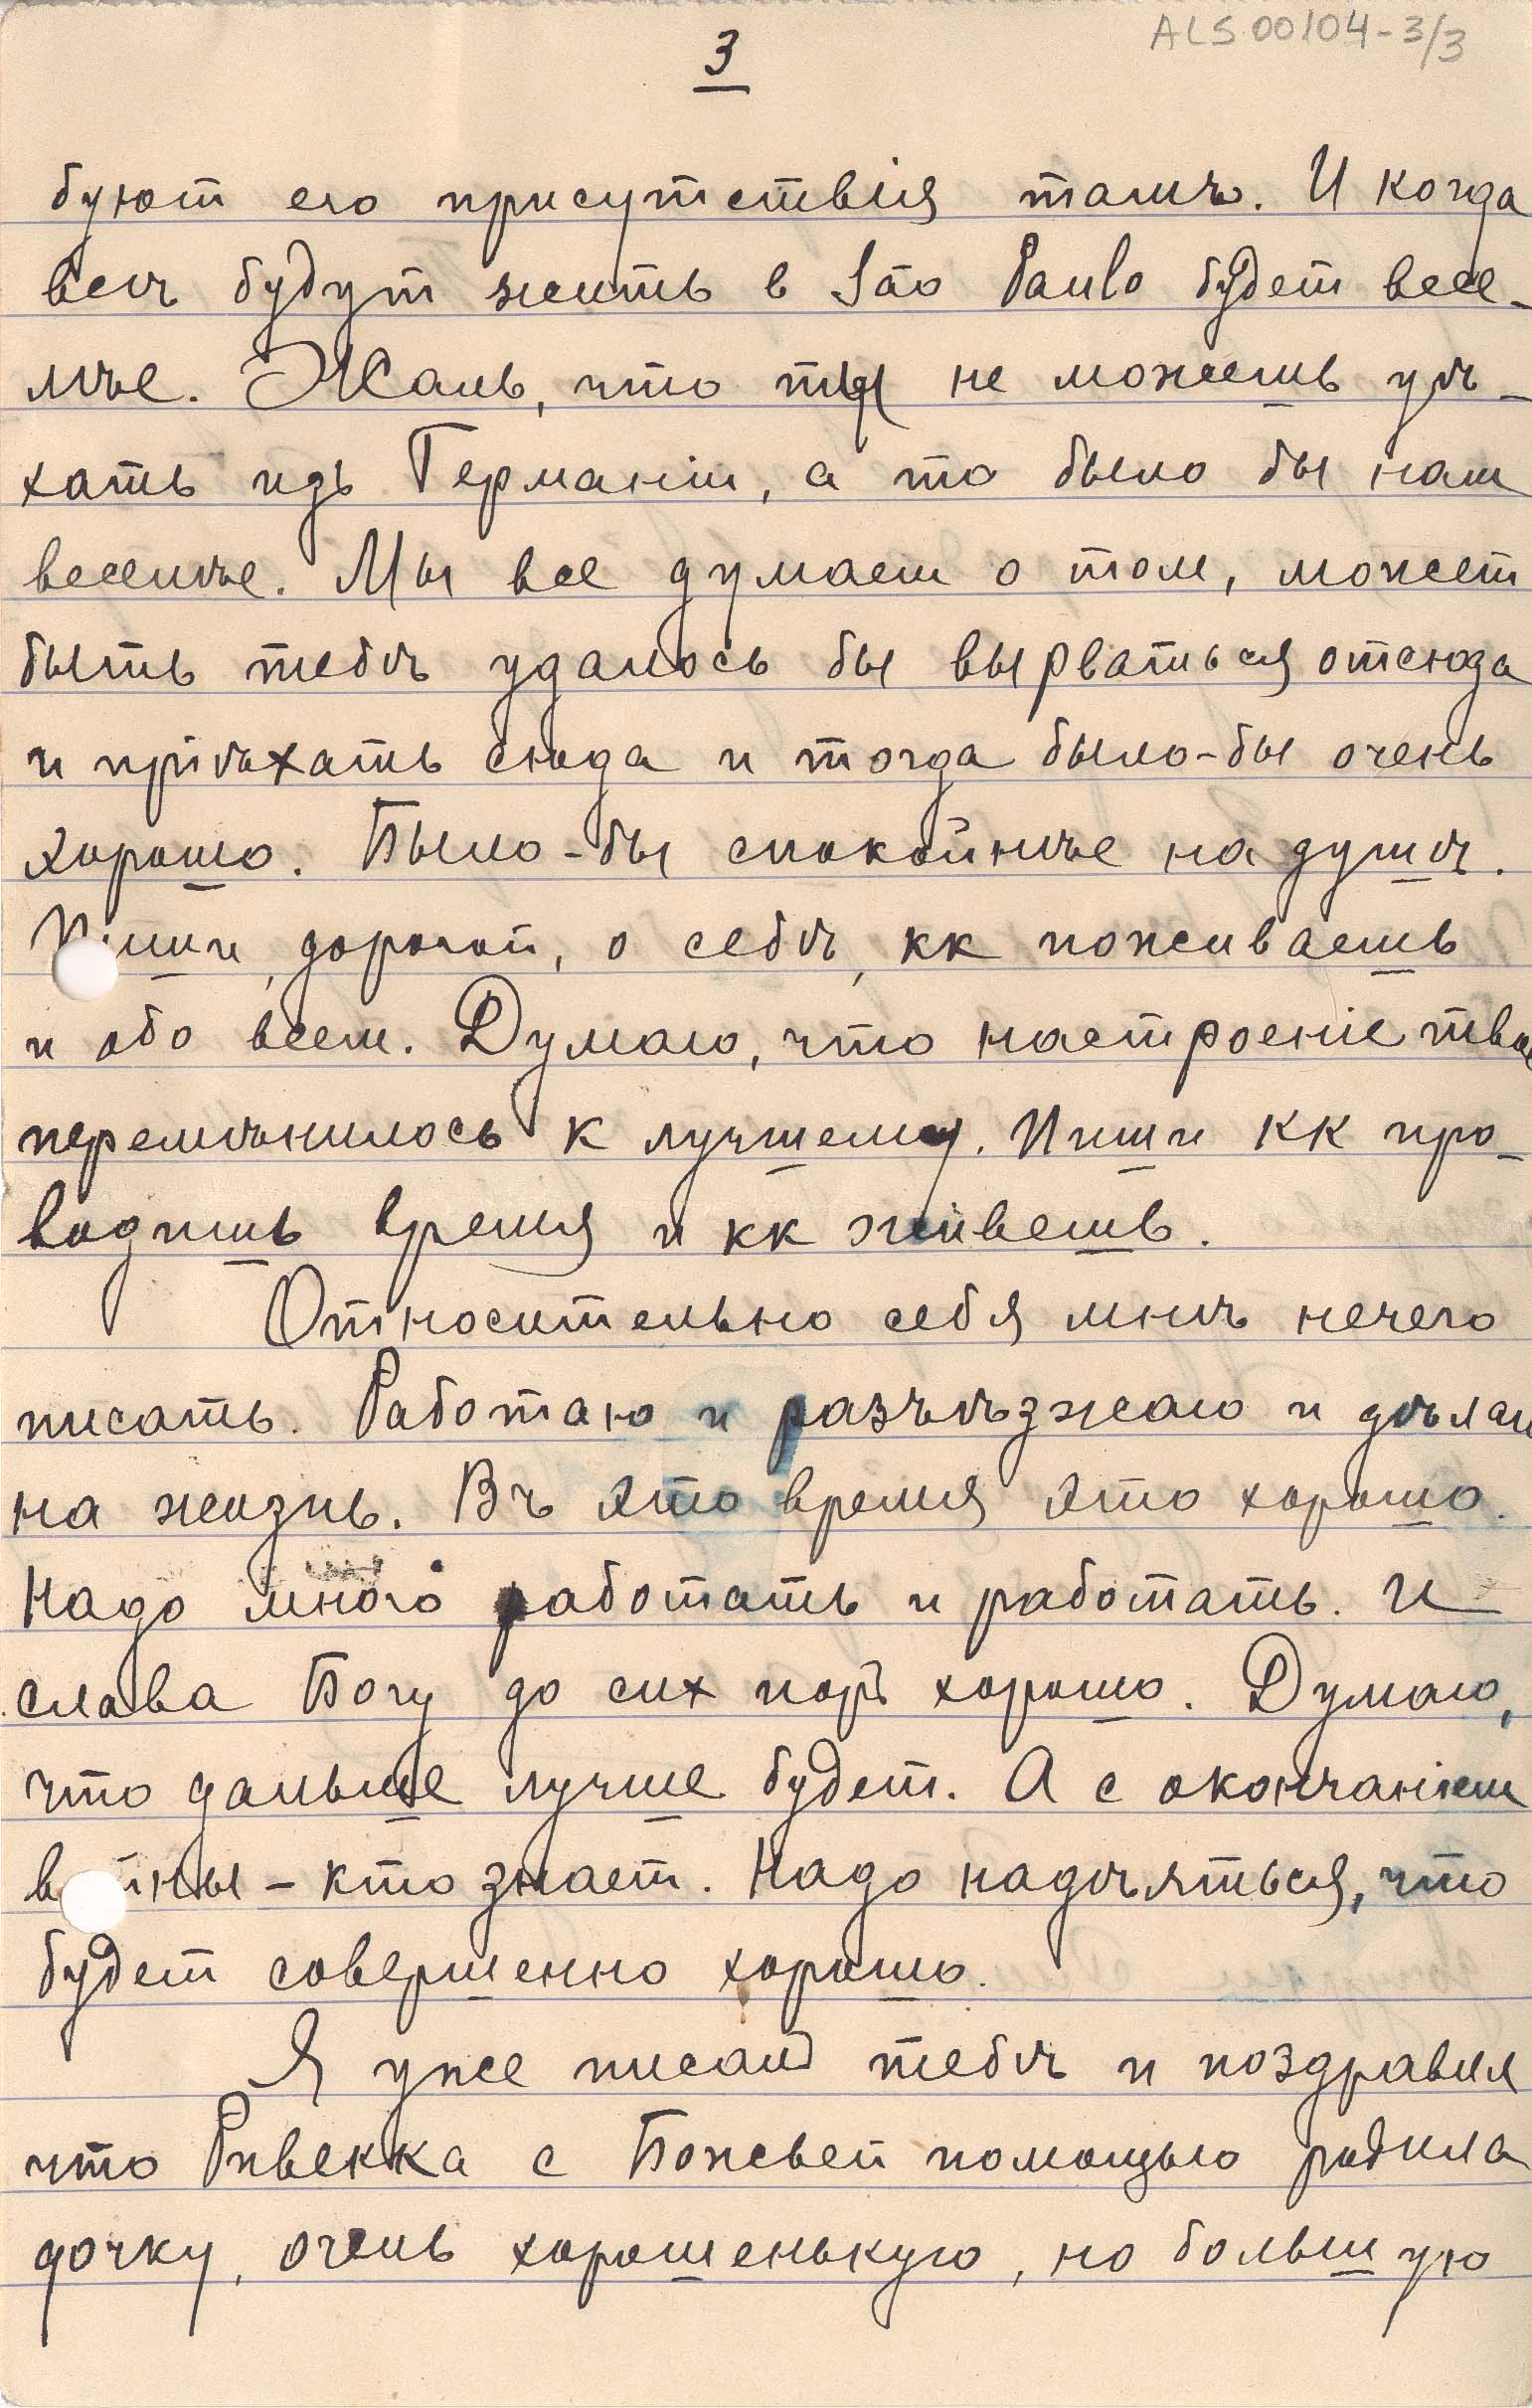 ALS 00104-3/3
3
буют его присутствія тамъ. И когда
всѣ будут жить в São Paulo будет весе-
лѣе. Жаль, что ты не можешь уѣ-
хать изъ Германіи, а то было бы нам
веселѣе. Мы все думаем о том, может
быть тебѣ удалось бы вырваться отсюда
и пріѣхать сюда и тогда было-бы очень
хорошо. Было-бы спокойнѣе на душѣ.
Пиши, дорогой, о себѣ, кк поживаешь
и обо всем. Думаю, что настроеніе твое
перемѣнилось к лучшему. Пиши кк про-
водишь время и кк живешь.
Относительно себя мнѣ нечего
писать. Работаю и разъѣзжаю и дѣлаю
на жизнь. Въ это время это хорошо.
Надо много работать и работать. И
слава Богу до сих поръ хорошо. Думаю,
что дальше лучше будет. А с окончаніем
войны - кто знает. Надо надѣяться, что
будет совершенно хорошо.
Я уже писалъ тебѣ и поздравил
что Ривекка с Божьей помощью родила
дочку, очень хорошенькую, но большую